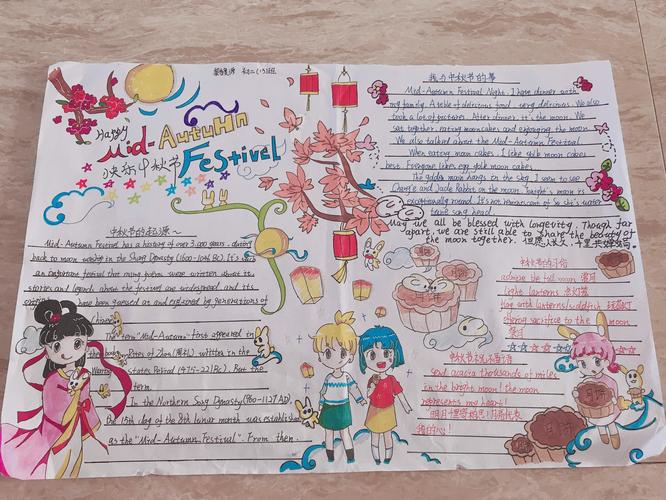 Happy
Mid-Autumn
Festival
快乐中秋节
中秋节的起源~
Mid-Autumn Festival has a history of over 3,000 years, dating
back to moon worship in the Shang Dynasty (1600-1046 BC). It's such
an important festival that many poems were written about it.
stories and legends about the festival are widespread and its
origins have been guessed at and explained by generations of
Chinese
The term "Mid-Autumn" first appeared in
the book Rites of Zhou (周礼), written in the
Warring states Period (475-221BC). But the
term
In the Northern Song Dynasty (960-1127 AD)
the 15th day of the 8th lunar month was establish
as the "Mid-Autumn Festival". From then.
我与中秋节的事
Mid-Autumn Festival Night. I have dinner with
my family. A table of delicious food very delicious. We also
took a lot of pictures. After dinner it's the moon. We
sat together, eating mooncakes and enjoying the moon.
We also talked about the Mid-Autumn Festival.
When eating moon cakes. I like yolk moon cakes
best. Everyone likes egg yolk moon cakes.
The golden moon hangs on the sky. I seem to see
Chang'e and Jade Rabbit on the moon. Tonight's moon is
exceptionally round.
May we all be blessed with longevity. Though far
apart, we are still able to share the beauty of
the moon together. 但愿人长久，千里共婵娟。
中秋节的习俗
admire the full moon 赏月
light lanterns
play with lanterns
offering sacrifice to the moon
祭月
中秋节祝福语
send acacia thousands of miles
in the bright moon! the moon
represents my heart!
我的心!
月饼